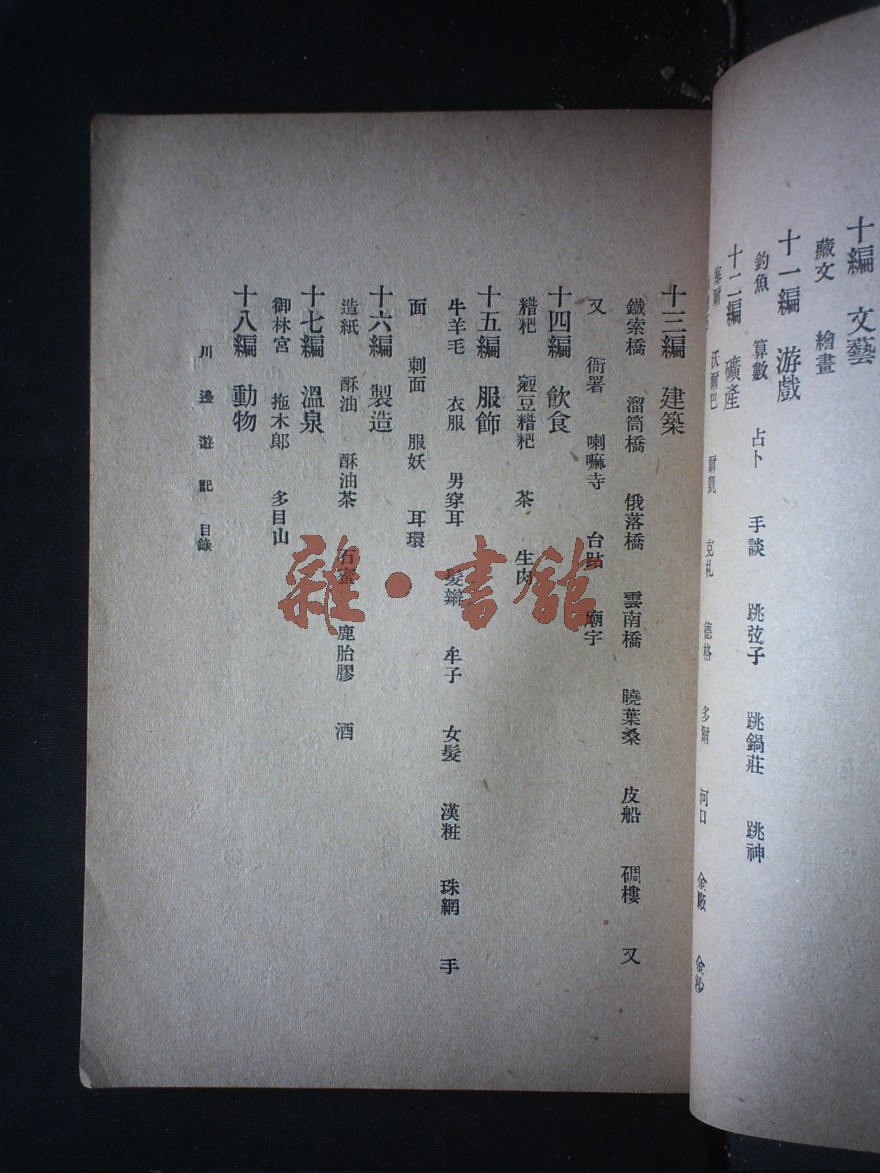 十編　文藝
藏文　繪畫
十一編　游戲
釣魚　算數　占卜　手談　跳弦子　跳鍋莊　跳神
十二編　礦產
沃爾巴　爾凱　克札　德格　多爾　河口　金廠
十三編　建築
鐵索橋　溜筒橋　俄落橋　雲南橋　曉葉桑　皮船　碉樓　又
又　衙署　喇嘛寺　台站　廟宇
十四編　飲食
糌粑　豌豆糌粑　茶　生肉
十五編　服飾
牛羊毛　衣服　男穿耳　髮辮　牟子　女髮　漢粧　珠網　手
面　刺面　服妖　耳環
十六編　製造
造紙　酥油　酥油茶　石　鹿胎膠　酒
十七編　溫泉
御林宮　拖木郎　多目山
十八編　動物
川邊遊記　目錄
雜·書館